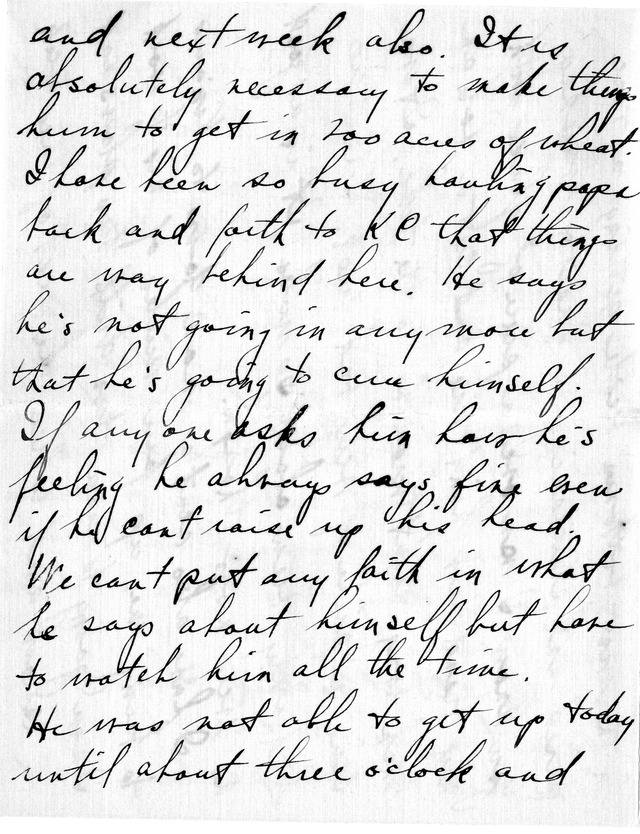 and next week also. It is
absolutely necessary to make things
hum to get in 200 acres of wheat.
I have been so busy hauling papa
back and forth to KC that things
are way behind here. He says
he's not going in any more but
that he's going to cure himself.
If any one asks him how he's
feeling he always says fine even
if he cant raise up his head.
We cant put any faith in what
he says about himself but have
to watch him all the time.
He was not able to get up today
until about three o'clock and